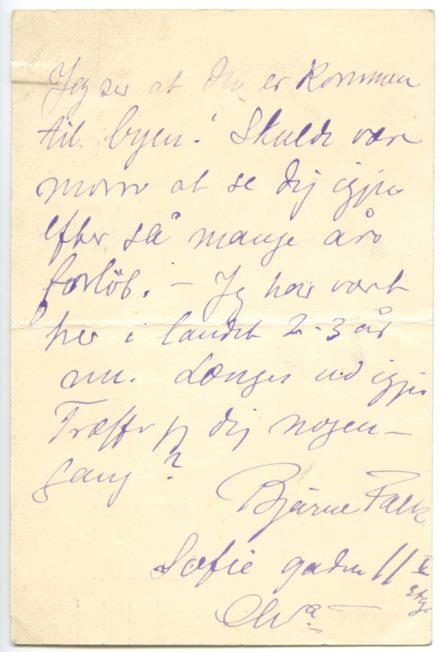 Jeg ser at du er kommen
til byen! Skulde være
morro at se dig igjen
efter så mange års
forløb. – Jeg har vært
her i landet 2-3 år
nu. Længes ud igjen
Træffer jeg dig nogen-
gang?
Bjarne Falk
Sofie gaden 11